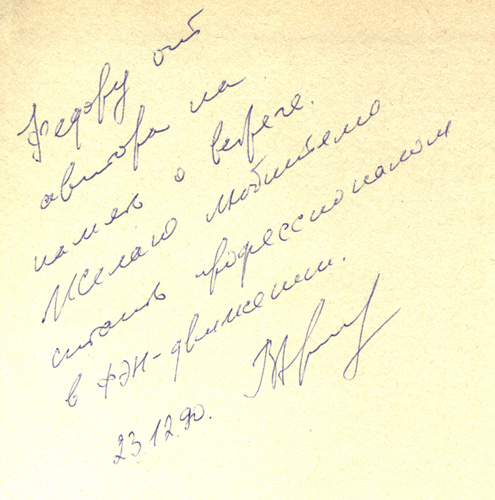 Федову от
автора на
память о встрече.
Желаю любителю
стать профессионалом
в фэн-движении.
23.12.90.